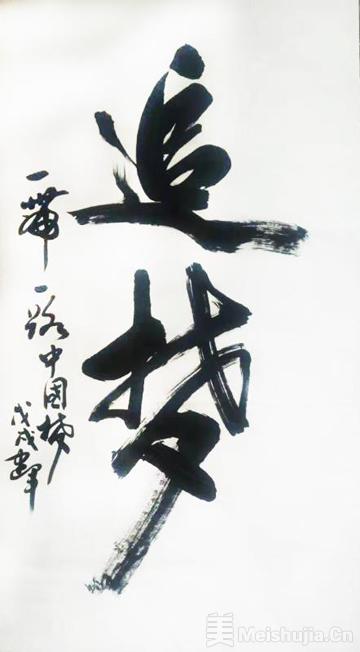 追梦
一帶一路中国梦
戊戌
美 Meishujia.Cn